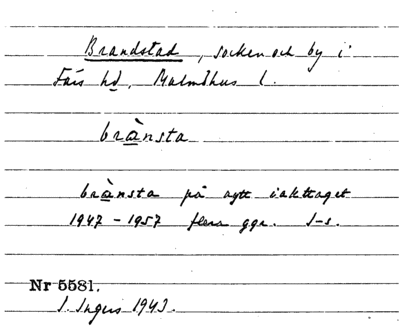 Brandstad, socken och by i
Färs hd, Malmöhus l.
brànsta
brànsta på nytt iakttaget
1947 - 1957 flera ggr. I-s.
Nr 5581.
I. Ingers 1943.